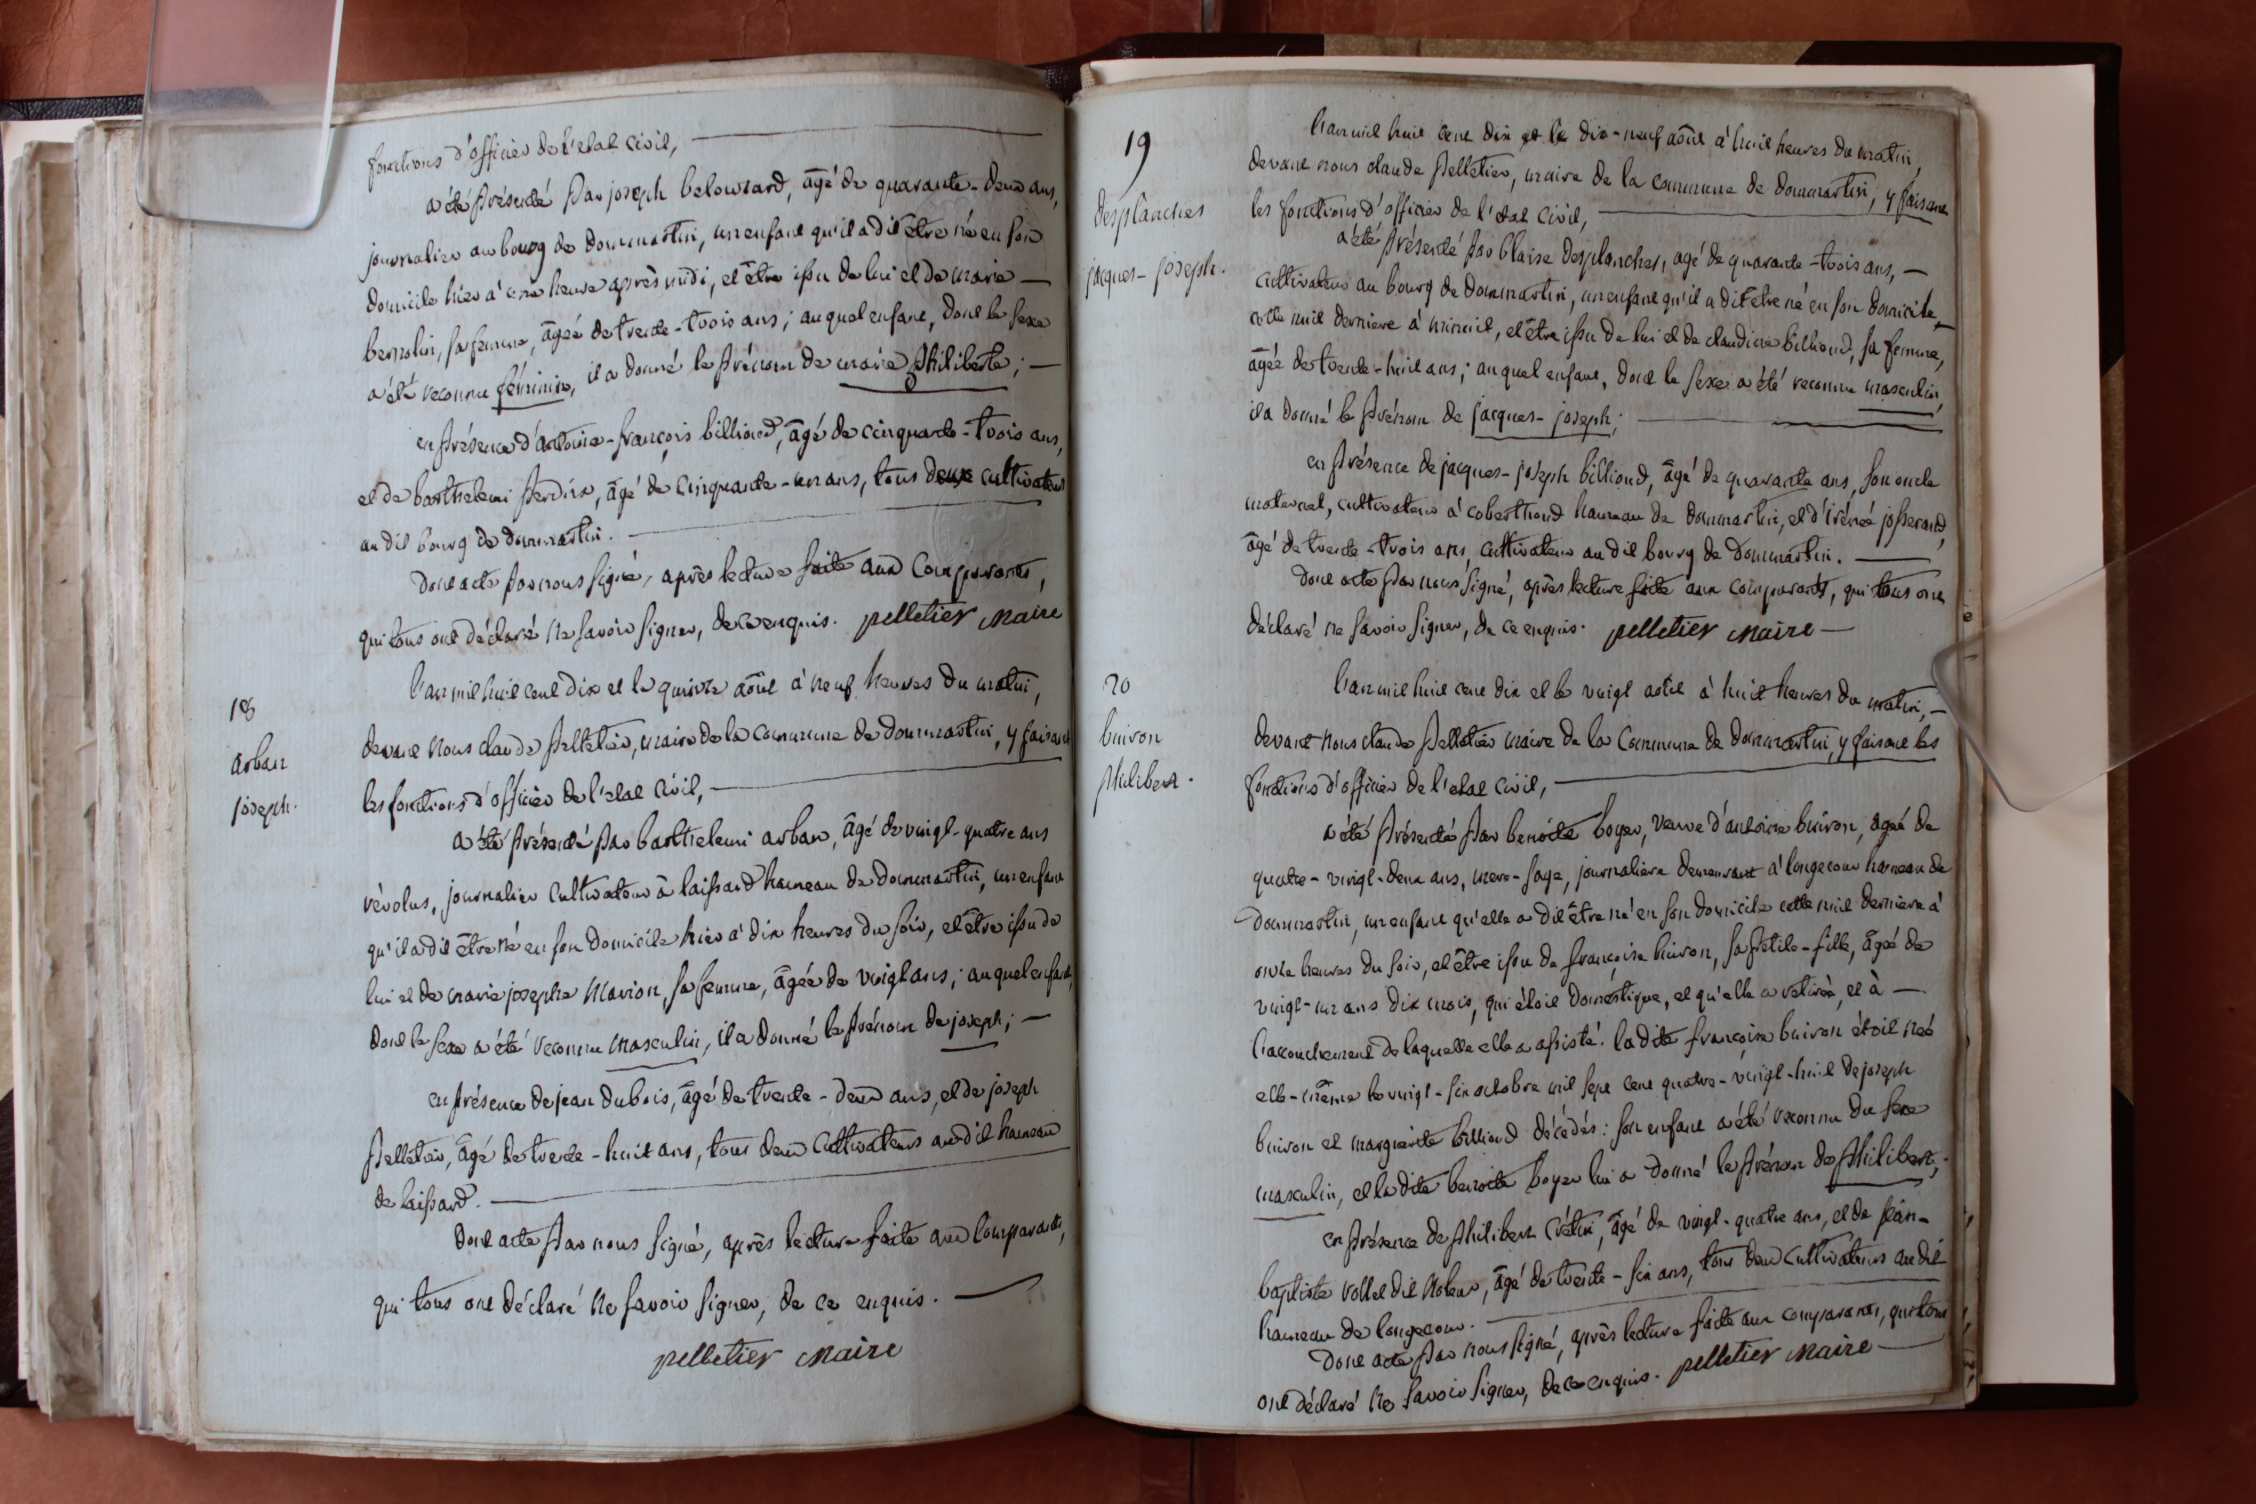 fonctions d'officier de l'etat civil,
a été présenté par joseph belouzard, âgé de quarante-deux ans,
journalier au bourg de dommartin, un enfant qu'il a dit être né en son
domicile hier à une heure après midi, et être issu de lui et de marie
bernolin, sa femme, âgée de trente-trois ans; auquel enfant, dont le sexe
a été reconnu féminin, il a donné le prénom de marie philiberte;
en présence d'antoine-françois billioud, âgé de cinquante-trois ans,
et de barthelemi perdrix, âgé de cinquante-un ans, tous deux cultivateurs
au dit bourg de dommartin.
dont acte par nous signé, après lecture faite aux comparants,
qui tous ont déclaré ne savoir signer, de ce enquis. pelletier maire
18
arban
joseph.
l'an mil huit cent dix et le quinze août à neuf heures du matin,
devant nous claude pelletier, maire de la commune de dommartin, y faisant
les fonctions d'officier de l'etat civil,
a été présenté par barthelemi arban, âgé de vingt-quatre ans
révolus, journalier cultivateur à laissard hameau de dommartin, un enfant
qu'il a dit être né en son domicile hier à dix heures du soir, et être issu de
lui et de marie josephe Marion, sa femme, âgée de vingt ans; auquel enfant,
dont le sexe a été reconnu masculin, il a donné le prénom de joseph;
en présence de jean dubois, âgé de trente-deux ans, et de joseph
pelletier, âgé de trente-huit ans, tous deux cultivateurs au dit hameau
de laissard.
dont acte par nous signé, après lecture faite aux comparants,
qui tous ont déclaré ne savoir signer, de ce enquis.
pelletier maire
19
desplanches
jacques-joseph.
l'an mil huit cent dix et le dix-neuf août à huit heures du matin,
devant nous claude pelletier, maire de la commune de dommartin, y faisant
les fonctions d'officier de l'etat civil,
a été présenté par blaise desplanches, agé de quarante-trois ans,
cultivateur au bourg de dommartin, un enfant qu'il a dit etre né en son domicile,
cette nuit derniere à minuit, et être issu de lui et de claudine billioud, sa femme,
âgée de trente-huit ans; auquel enfant, dont le sexe a été reconnu masculin,
il a donné le prénom de jacques-joseph;
en présence de jacques-joseph billioud, âgé de quarante ans, son oncle
maternel, cultivateur à coberthoud hameau de dommartin, et d'irénée josserand,
âgé de trente-trois ans, cultivateur au dit bourg de dommartin.
dont acte par nous signé, après lecture faite aux comparants, qui tous ont
déclaré ne savoir signer, de ce enquis. pelletier maire
20
buiron
philibert.
l'an mil huit cent dix et le vingt août à huit heures du matin,
devant nous claude pelletier maire de la commune de dommartin, y faisant les
fonctions d'officier de l'etat civil,
a été présenté par benoite boyer, veuve d'antoine buiron, agée de
quatre-vingt-deux ans, mere-sage, journaliere demeurant à longecour hameau de
dommartin, un enfant qu'elle a dit être né en son domicile cette nuit derniere à
onze heures du soir, et être issu de françoise buiron, sa petite-fille, âgée de
vingt-un ans dix mois, qui étoit domestique, et qu'elle a retirée, et à
l'accouchement de laquelle elle a assisté. la dite françoise buiron étoit née
elle-même le vingt-six octobre mil sept cent quatre-vingt-huit de joseph
buiron et marguerite billioud décédés: son enfant a été reconnu du sexe
masculin, et la dite benoite boyer lui a donné le prénom de philibert;
en présence de philibert crétin, âgé de vingt-quatre ans, et de jean-
baptiste vollet dit, âgé de trente-six ans, tous deux cultivateurs au dit
hameau de longecour.
dont acte par nous signé, après lecture faite aux comparants, qui tous
ont déclaré ne savoir signer, de ce enquis. pelletier maire